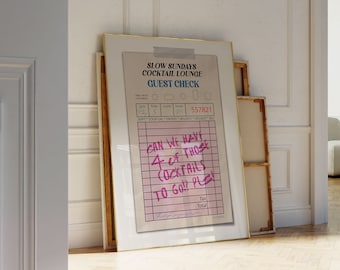 SLOW SUNDAYS
COCKTAIL LOUNGE
GUEST CHECK
157821
CAN WE HAVE
4 of THOSE
COCKTAILS
TO GO!! PLS!